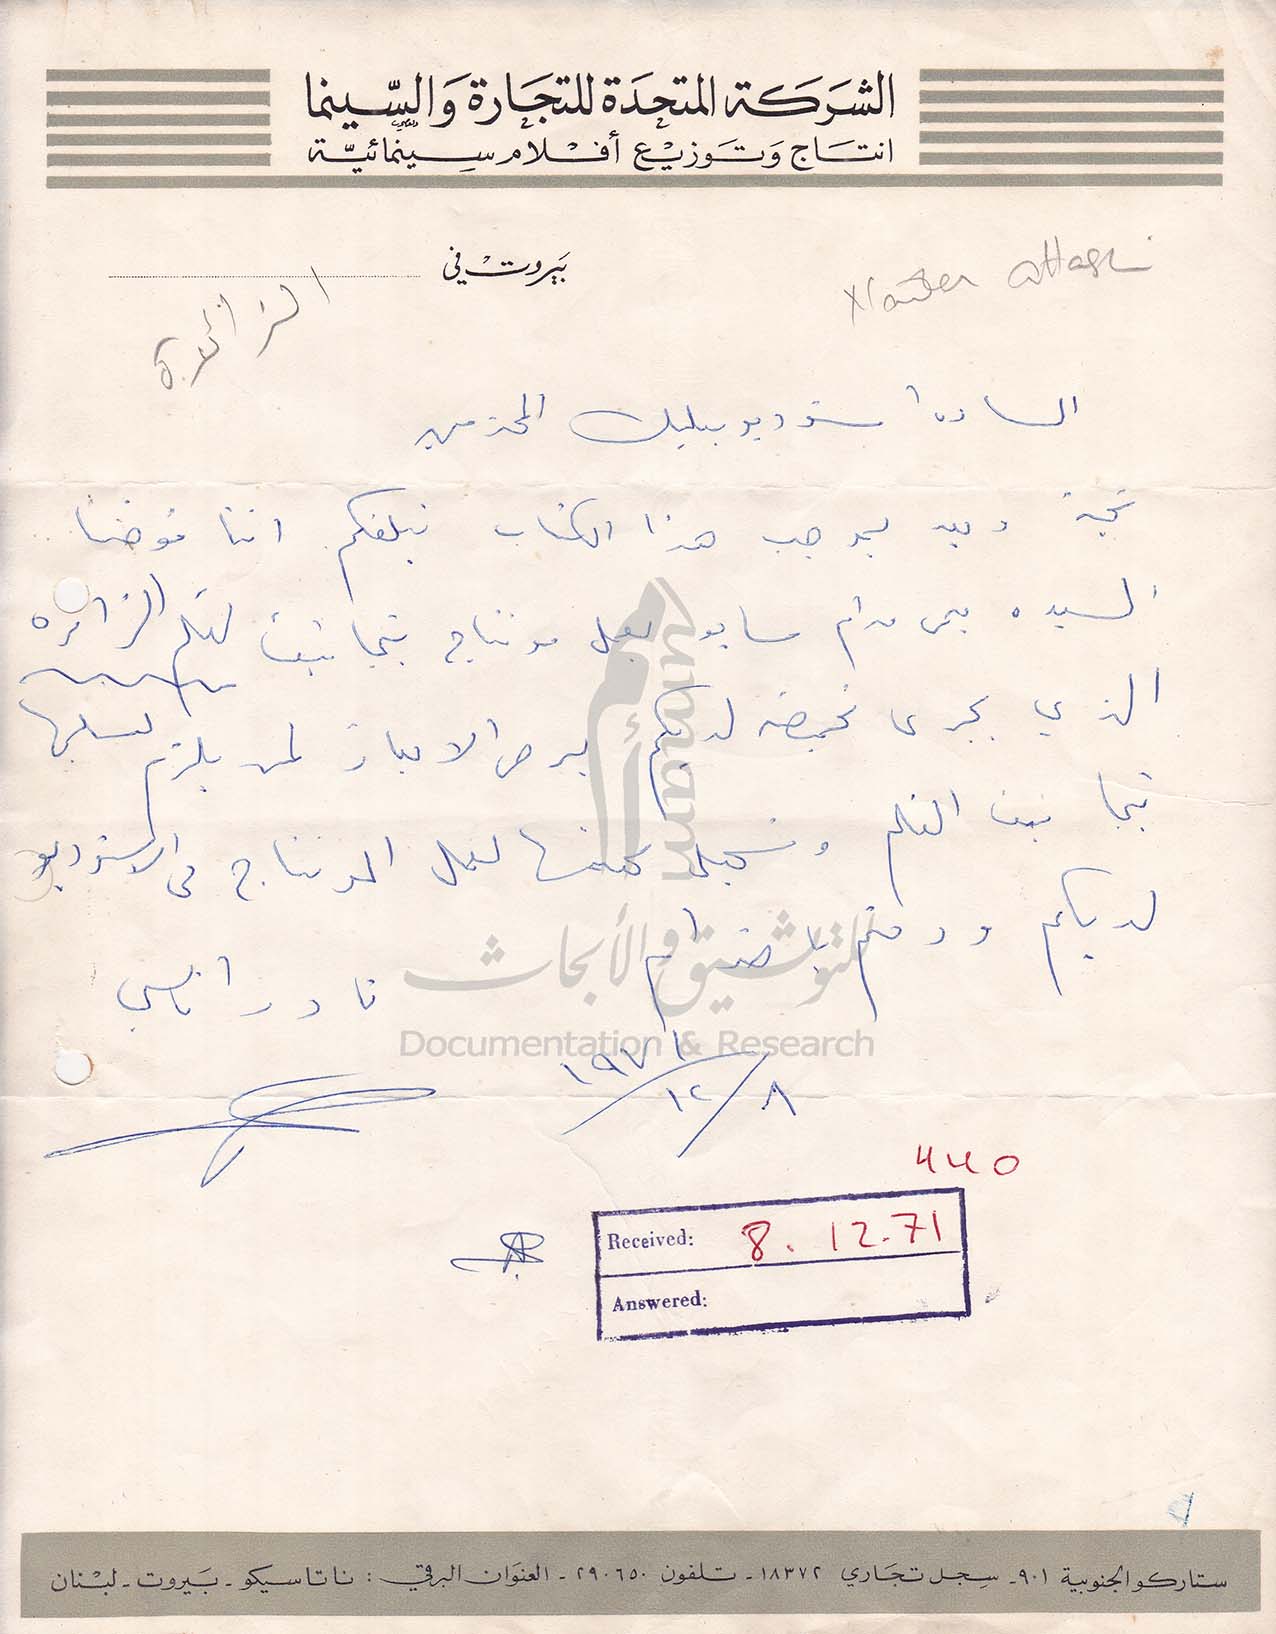 الشركة المتحدة للتجارة والسينما
انتاج وتوزيع أفلام سينمائية
بيروت في
Nader Attassi
الزائرة
السادة استوديو بعلبك المحترمين
تحية وبعد بموجب هذا الكتاب نبلغكم اننا فوضنا
السيده مدام سابو بعمل مونتاج نيجاتيف لفلم الزائره
الذي يجري تحميضه لديكم يرجى الايعاز لمن يلزم لتسليمها
نيجاتيف الفلم وتسهيل مهمتها لعمل المونتاج في الاستوديو
لديكم ودمتم باحترام
نادر اتاسي
٨/١٢/١٩٧١
440
Received: 8.12.71
Answered:
أمم
umam
للتوثيق والأبحاث
Documentation & Research
ستاركو الجنوبية ٩٠١ - سجل تجاري ١٨٣٧٢ - تلفون ٢٩٠٦٥٠ - العنوان البرقي : ناتاسيكو - بيروت - لبنان